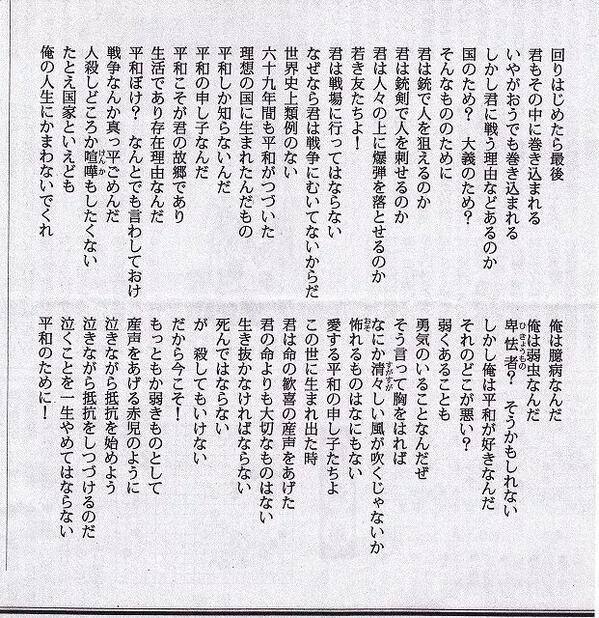 回りはじめたら最後
君もその中に巻き込まれる
いやがおうでも巻き込まれる
しかし君に戦う理由などあるのか
国のため？　大義のため？
そんなもののために
君は銃で人を狙えるのか
君は銃剣で人を刺せるのか
君は人々の上に爆弾を落とせるのか
若き友たちよ！
君は戦場に行ってはならない
なぜなら君は戦争にむいてないからだ
世界史上類例のない
六十九年間も平和がつづいた
理想の国に生まれたんだもの
平和しか知らないんだ
平和の申し子なんだ
平和こそが君の故郷であり
生活であり存在理由なんだ
平和ぼけ？　なんとでも言わしておけ
戦争なんか真っ平ごめんだ
人殺しどころか喧嘩もしたくない
たとえ国家といえども
俺の人生にかまわないでくれ
俺は臆病なんだ
俺は弱虫なんだ
卑怯者？　そうかもしれない
しかし俺は平和が好きなんだ
それのどこが悪い？
弱くあることも
勇気のいることなんだぜ
そう言って胸をはれば
なにか清々しい風が吹くじゃないか
怖れるものはなにもない
愛する平和の申し子たちよ
この世に生まれ出た時
君は命の歓喜の産声をあげた
君の命よりも大切なものはない
生き抜かなければならない
死んではならない
が　殺してもいけない
だから今こそ！
もっとも弱きものとして
産声をあげる赤児のように
泣きながら抵抗を始めよう
泣きながら抵抗をしつづけるのだ
泣くことを一生やめてはならない
平和のために！